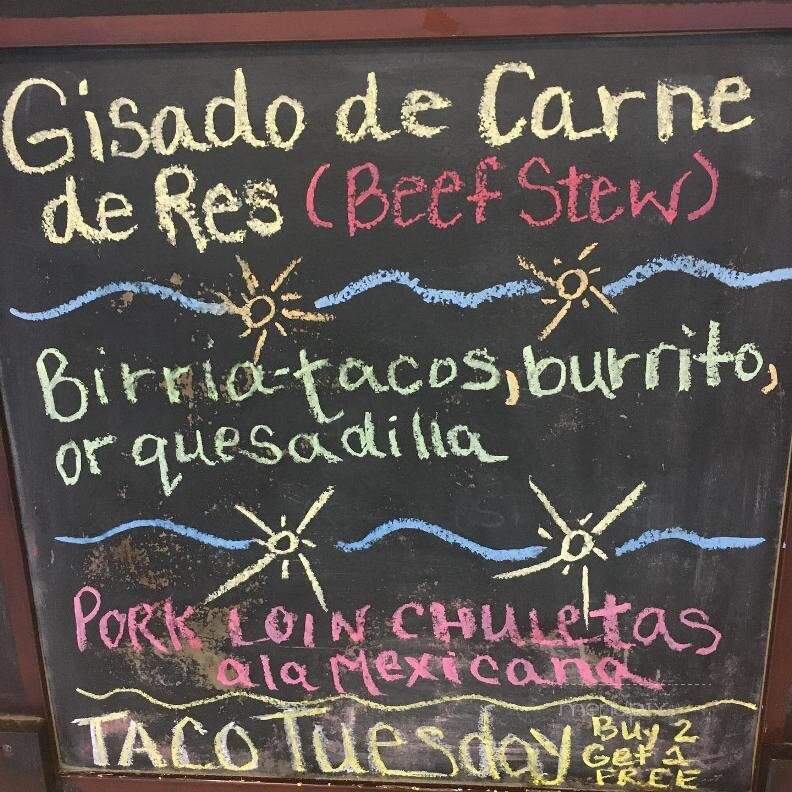 Gisado de Carne
de Res (Beef Stew)
Birria-tacos, burrito,
or quesadilla
PORK LOIN CHULETAS
a la Mexicana
TACO Tuesday
Buy 2
Get 1
FREE